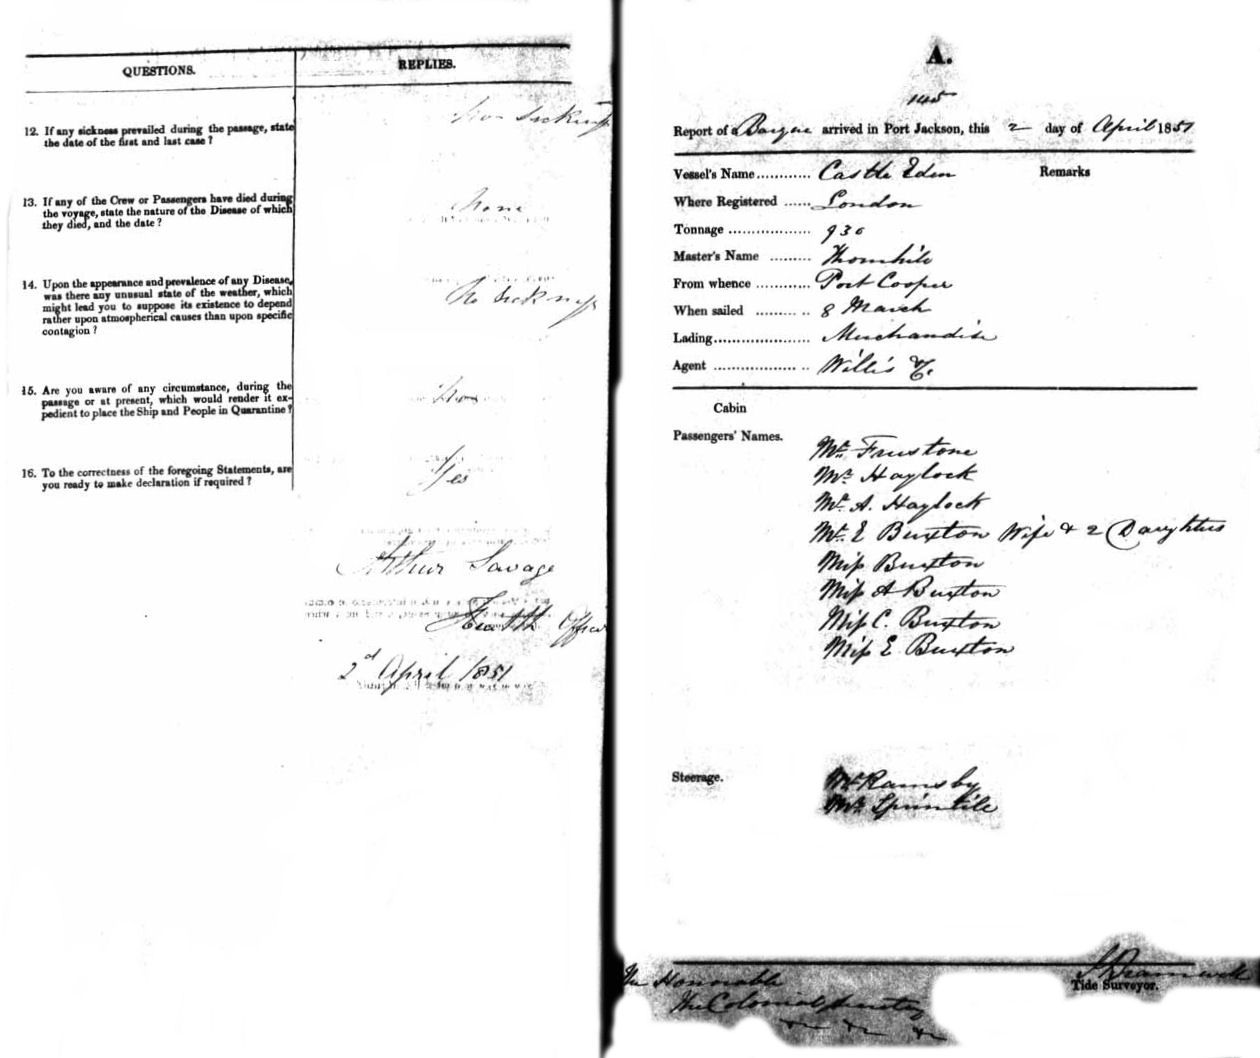 QUESTIONS.
REPLIES.
12. If any sickness prevailed during the passage, state
the date of the first and last case?
sickness
13. If any of the Crew or Passengers have died during
the voyage, state the nature of the Disease of which
they died, and the date?
None
14. Upon the appearance and prevalence of any Disease,
was there any unusual state of the weather, which
might lead you to suppose its existence to depend
rather upon atmospherical causes than upon specific
contagion?
No Sickness
15. Are you aware of any circumstance, during the
passage or at present, which would render it ex-
pedient to place the Ship and People in Quarantine?
16. To the correctness of the foregoing Statements, are
you ready to make declaration if required?
Yes
Arthur Savage
Health Officer
2d April 1851
A.
145
Report of a Barque arrived in Port Jackson, this 2 day of April 1851
Vessel's Name ............ Castle Eden Remarks
Where Registered ...... London
Tonnage .................. 930
Master's Name ......... Thornhill
From whence ............ Port Cooper
When sailed ............ 8 March
Lading...................... Merchandise
Agent ...................... Willis & Co.
Cabin
Passengers' Names.
Mr. Frustone
Mr. Haylock
Mr. A. Haylock
Mr. E Buxton Wife & 2 Daughters
Miss Buxton
Miss A Buxton
Miss C. Buxton
Miss E. Buxton
Steerage.
Mr Ramsby
Mr.
Tide Surveyor.
The Honorable
The Colonial Secretary
&c &c &c